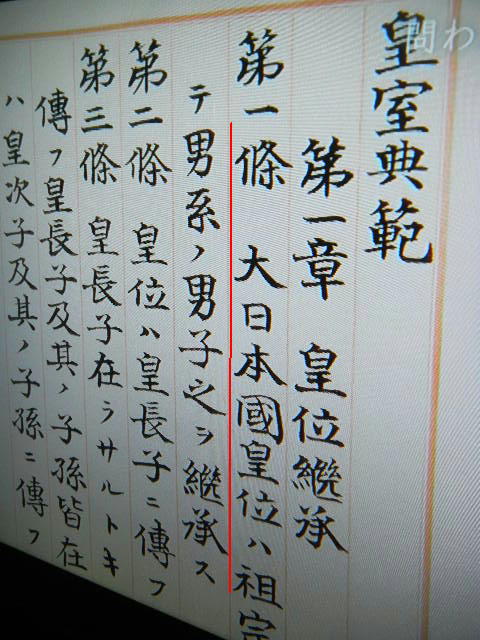 問わ
皇室典範
第一章 皇位繼承
第一條 大日本國皇位ハ祖宗
テ男系ノ男子之ヲ繼承ス
第二條 皇位ハ皇長子ニ傳フ
第三條 皇長子在ラサルトキ
傳フ皇長子及其ノ子孫皆在
ハ皇次子及其ノ子孫ニ傳フ